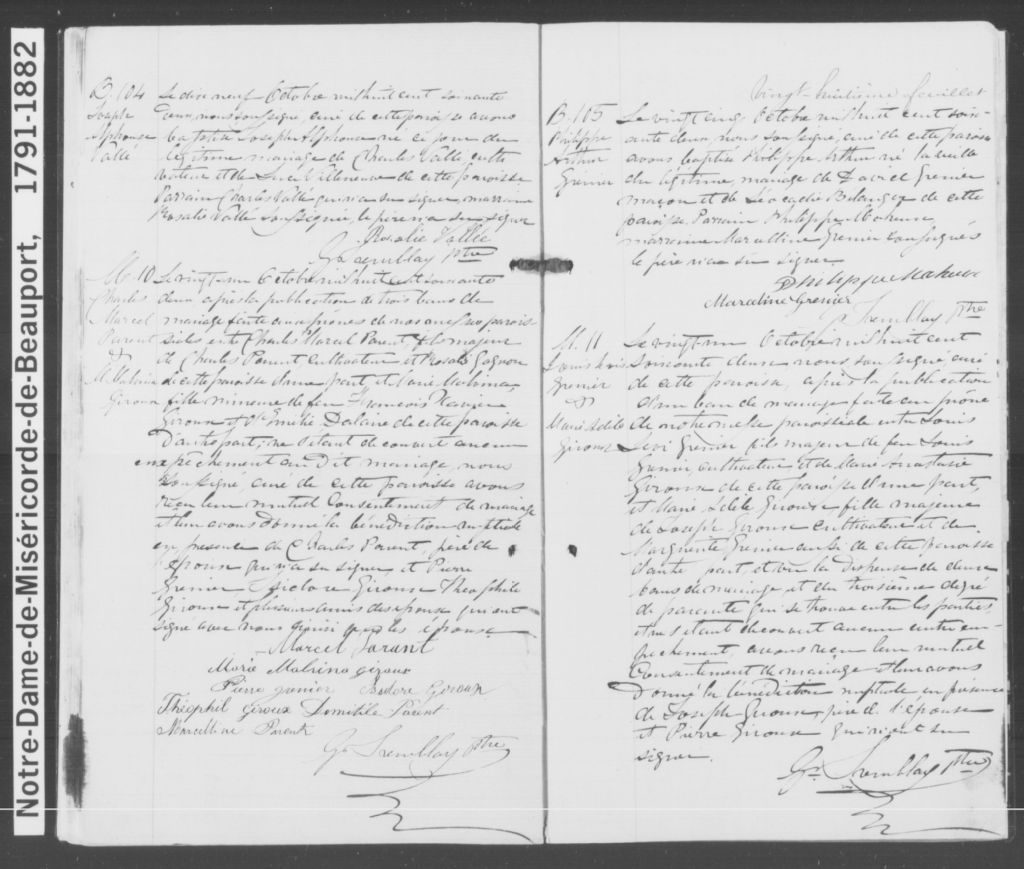 Notre-Dame-de-Miséricorde-de-Beauport, 1791-1882
B. 104
Joseph
Alphonse
Vallé
Le dix neuf Octobre mil huit cent soixante
deux, nous soussigné, curé de cette paroisse avons
baptisé Joseph Alphonse né ce jour du
légitime mariage de Charles Vallé culti
vateur et de Luce Villeneuve de cette paroisse
Parrain Charles Vallé qui n'a su signer, marraine
Rosalie Vallé soussignée, le père n'a su signer
Rosalie Vallée
Gr Tremblay Ptre
M. 10
Charles
Marcel
Parent
&
M. Malvina
Giroux
Le vingt un Octobre mil huit cent soixante
deux après la publication de trois bans de
mariage faite aux prônes de nos messes parois
siales entre Charles Marcel Parent, fils majeur
de Charles Parent Cultivateur et Rosalie Gagnon
de cette paroisse d'une part, et Marie Malvina
fille mineure de feu François Xavier
Giroux et de Emélie Dalaire de cette paroisse
d'autre part; ne s'étant découvert aucun
empêchement au dit mariage, nous
soussigné, curé de cette paroisse avons
reçu leur mutuel Consentement de mariage
et leur avons donné la bénédiction nuptiale
en présence de Charles Parent, père de
l'époux qui n'a su signer, et Pierre
Grenier Isidore Giroux Théophile
Giroux et plusieurs amis des époux qui ont
signé avec nous ainsi que les épouse
Marcel Parant
Marie Malvina giroux
Pierre grenier Isidore Giroux
Théophil giroux Domitile Parent
Marcelline Parent
Gr Tremblay Ptre
Vingt huitième feuillet
B. 105
Philippe
Arthur
Grenier
Le vingt cinq Octobre mil huit cent soix-
ante deux, nous soussigné, curé de cette paroisse
avons baptisé Philippe Arthur né la veille
du légitime mariage de David Grenier
maçon et de Léocadie Bélanger de cette
paroisse Parrain Philippe Maheux
marraine Marcelline Grenier soussignés
le père n'a su signer.
Philippe Maheux
Marceline Grenier
Gr Tremblay Ptre
M. 11
Louis Lévi
Grenier
&
Marie Adèle
Giroux
Le vingt un Octobre mil huit cent
soixante deux, nous soussigné, curé
de cette paroisse, après la publication
d'un ban de mariage faite au prône
de notre messe paroissiale entre Louis
Lévi Grenier fils majeur de feu Louis
Grenier, cultivateur et de Marie Anastasie
Giroux de cette paroisse d'une part,
et Marie Adèle Giroux fille majeure
de Joseph Giroux Cultivateur et de
Marguerite Grenier aussi de cette paroisse
d'autre part, et vu la dispense de deux
bans de mariage et du troisième degré
de parenté qui se trouve entre les parties,
et ne s'étant découvert aucun autre em-
pêchement, avons reçu leur mutuel
Consentement de mariage et leur avons
Donné la bénédiction nuptiale en présence
de Joseph Giroux, père de l'épouse
et Pierre Giroux qui n'ont su
signer.
Gr Tremblay Ptre